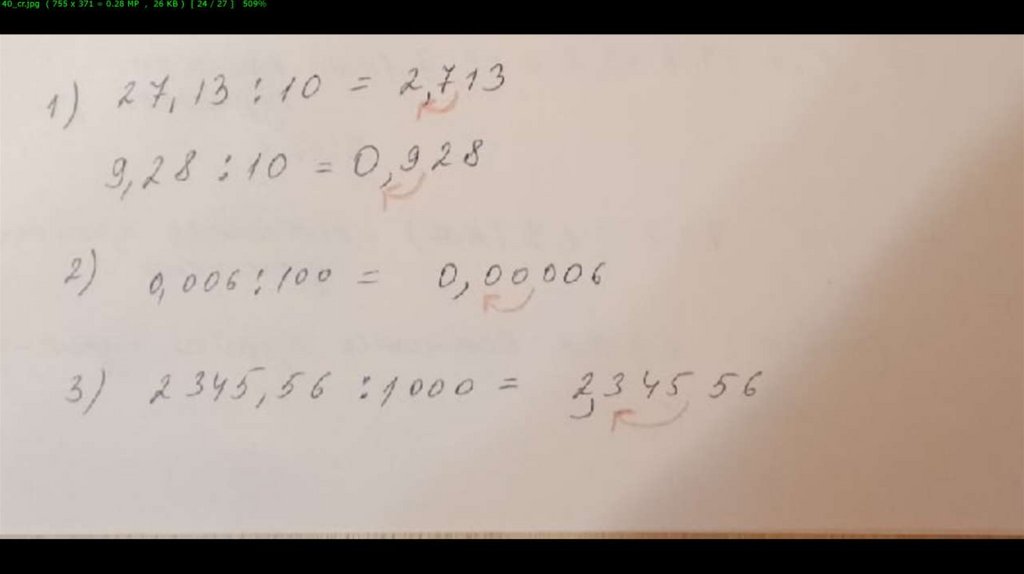 40_cr.jpg ( 755 x 371 = 0.28 MP , 26 KB ) [ 24 / 27 ] 509%
1) 27,13 : 10 = 2,713
9,28 : 10 = 0,928
2) 0,006 : 100 = 0,00006
3) 2345,56 : 1000 = 2,34556